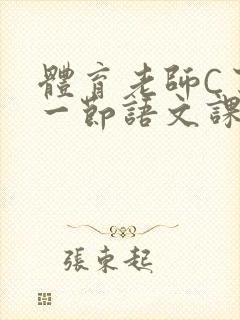 體育老師C
一節語文課
張東起